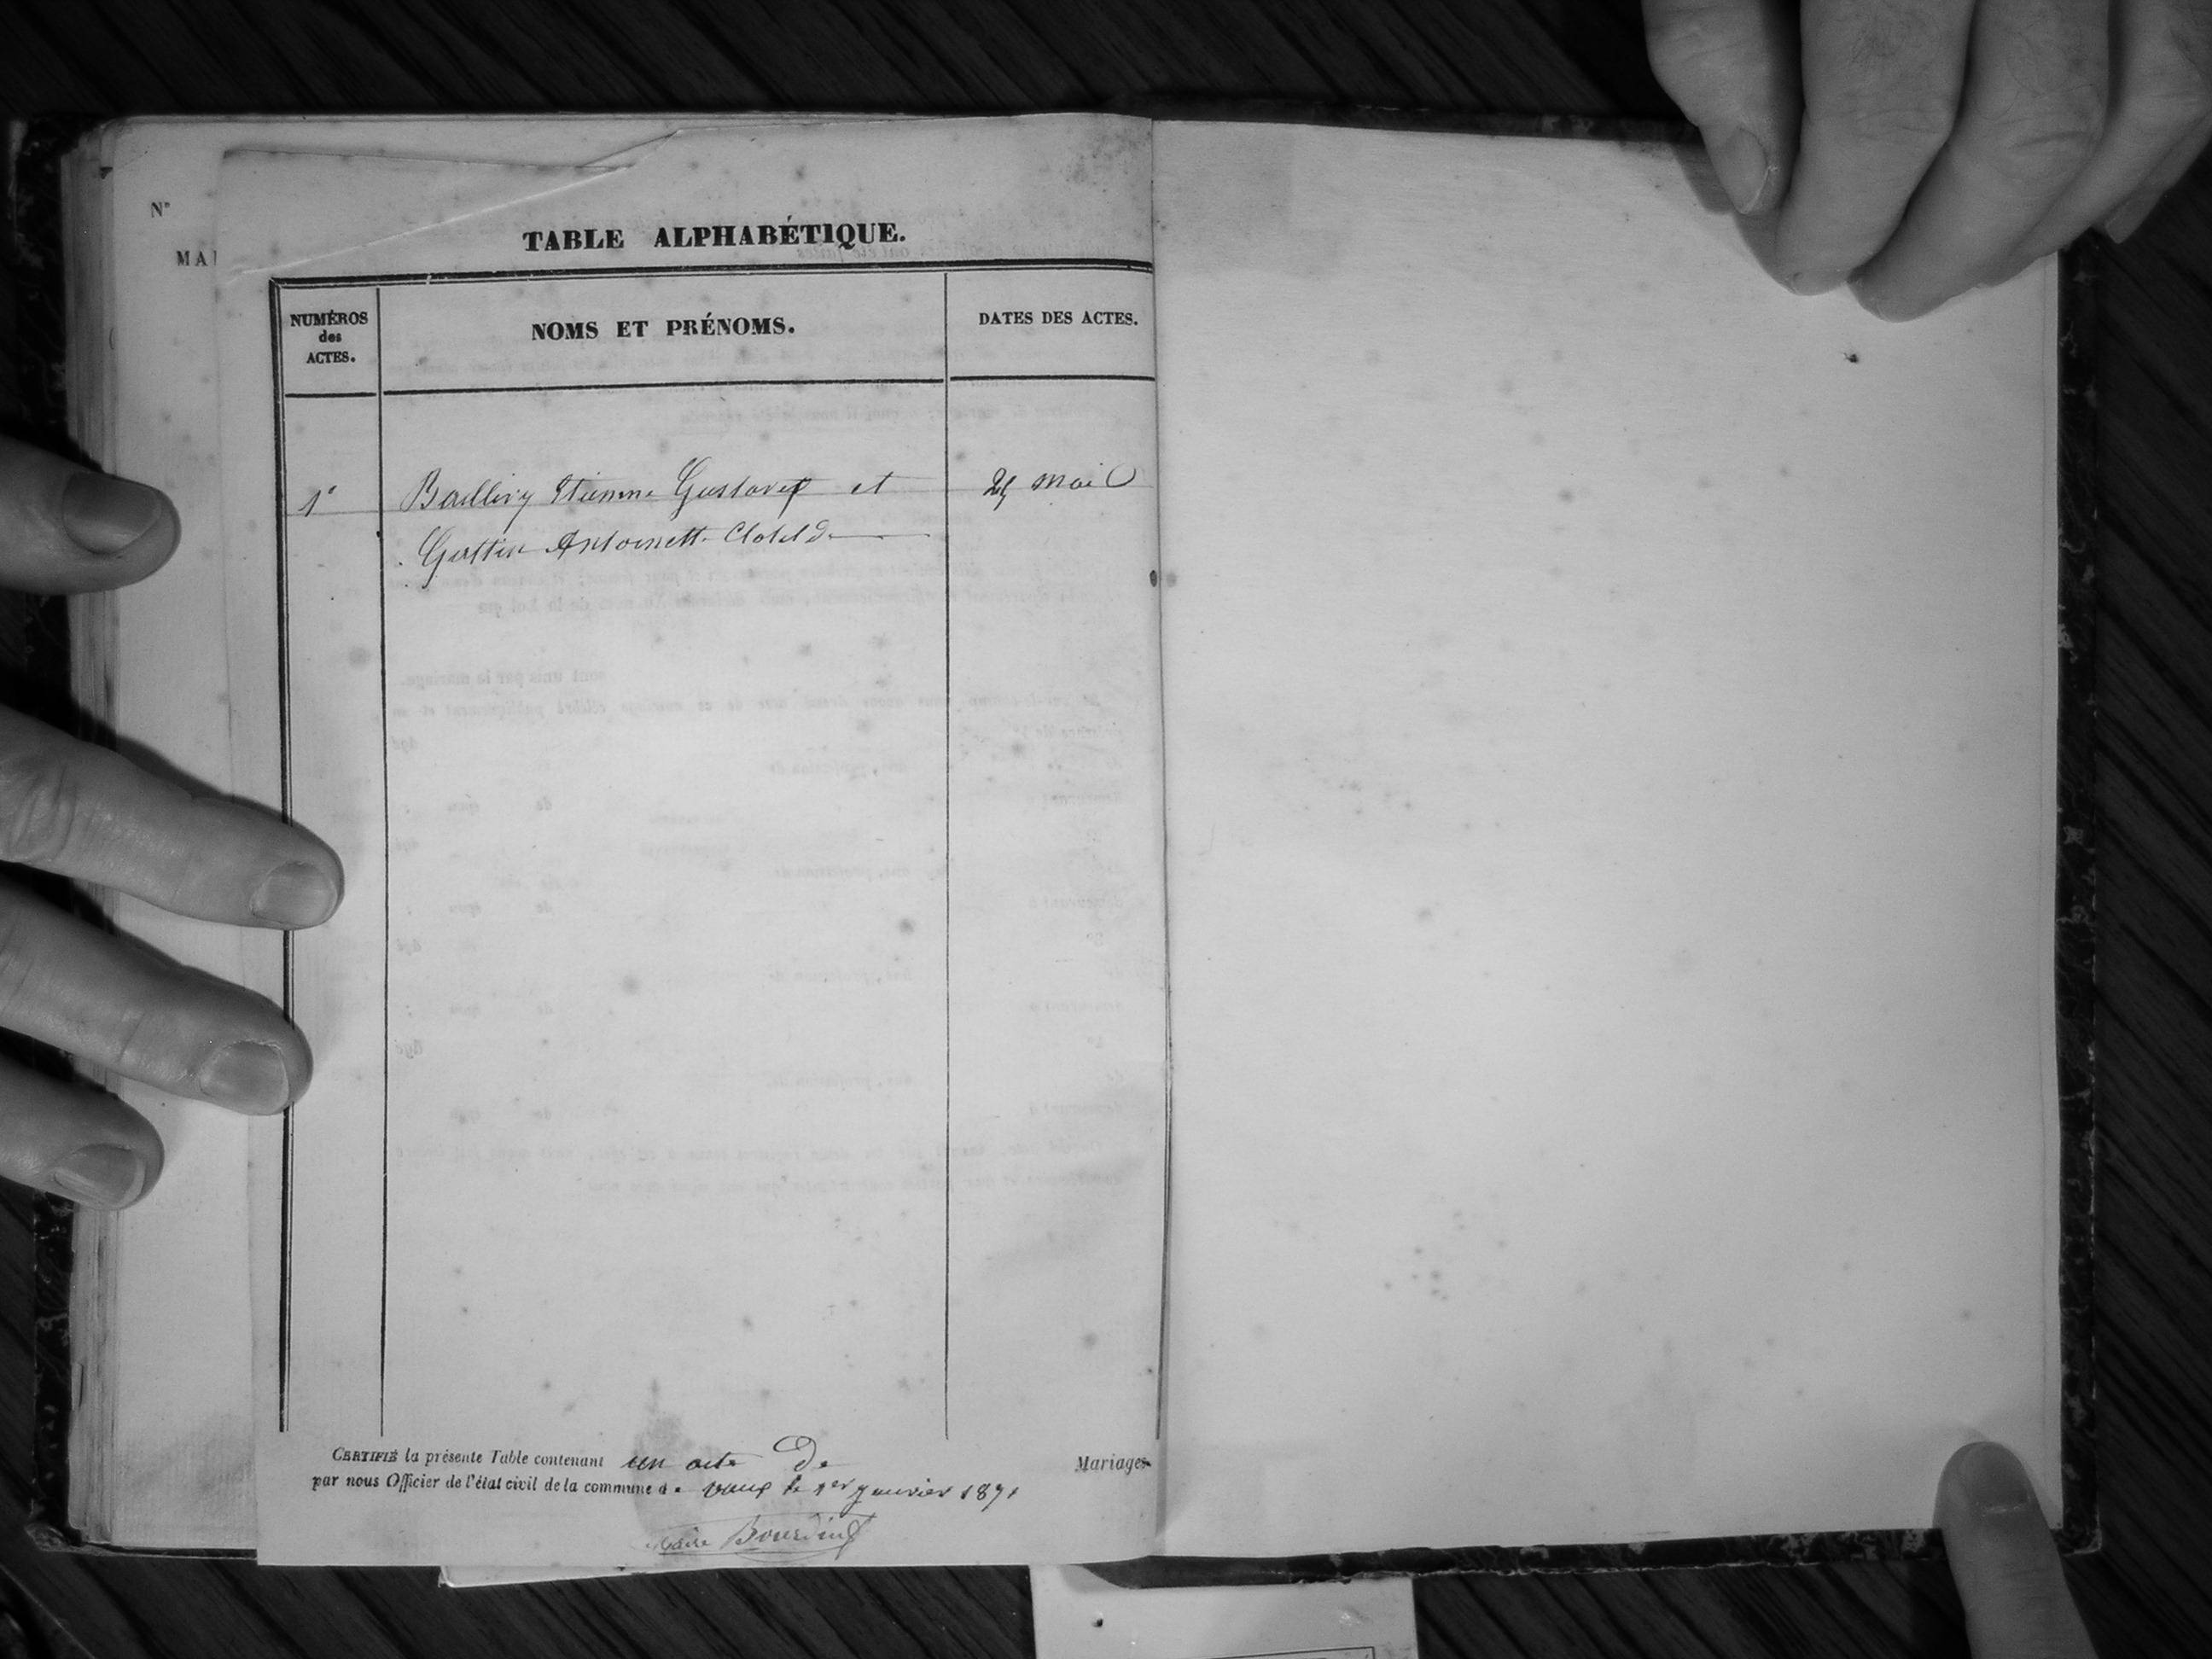 N°
MAI
TABLE ALPHABÉTIQUE.
NUMÉROS
des
ACTES.
NOMS ET PRÉNOMS.
DATES DES ACTES.
1°
Baillivy Etienne Gustave et
Antoinette Clotilde
Mai
CERTIFIÉ la présente Table contenant un acte De Mariages
par nous Officier de l'état civil de la commune de vaux le 1er janvier 1871
Maire Bourdin